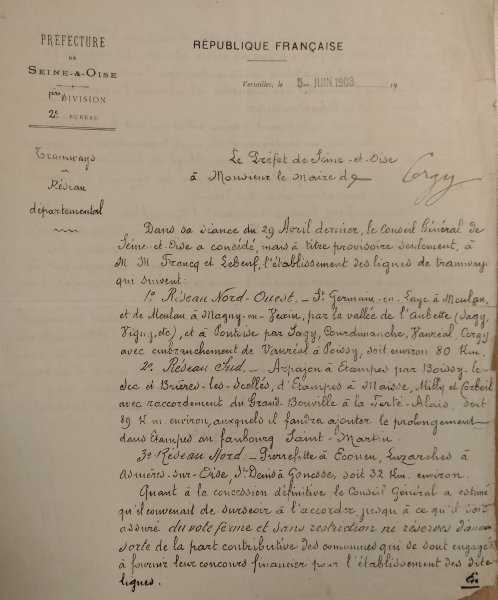 PRÉFECTURE
DE
SEINE-&-OISE
1ère DIVISION
2e BUREAU
Tramways
Réseau
départemental
RÉPUBLIQUE FRANÇAISE
Versailles, le 5- JUIN 1903 19
Le Préfet de Seine-et-Oise
à Monsieur le Maire de Cergy
Dans sa séance du 29 Avril dernier, le Conseil Général de
Seine-et-Oise a concédé, mais à titre provisoire seulement, à
M.M. Francq et Lebeuf, l'établissement des lignes de tramways
qui suivent:
1º Réseau Nord-Ouest. - St Germain-en-Laye à Meulan,
et de Meulan à Magny-en-Vexin, par la vallée de l'Aubette (Sagy,
Vigny, etc), et à Pontoise par Sagy, Courdimanche, Vauréal, Cergy
avec embranchement de Vauréal à Poissy, soit environ 80 Km.
2º Réseau Sud. - Arpajon à Etampes par Boissy-le-
Sec et Brières-les-Scellés, d'Etampes à Maisse, Milly et Corbeil
avec raccordement du Grand-Bouville à la Ferté-Alais, soit
89 Km. environ, auxquels il faudra ajouter le prolongement
dans Etampes au faubourg Saint-Martin.
3º Réseau Nord - Pierrefitte à Ecouen, Luzarches à
Asnières-sur-Oise, St Denis à Gonesse, soit 32 Km. environ.
Quant à la concession définitive, le Conseil Général a estimé
qu'il convenait de surseoir à l'accorder jusqu'à ce qu'il soit
assuré du vote ferme et sans restriction ne réserves d'aucune
sorte de la part contributive des communes qui se sont engagées
à fournir leur concours financier pour l'établissement des dites
lignes.